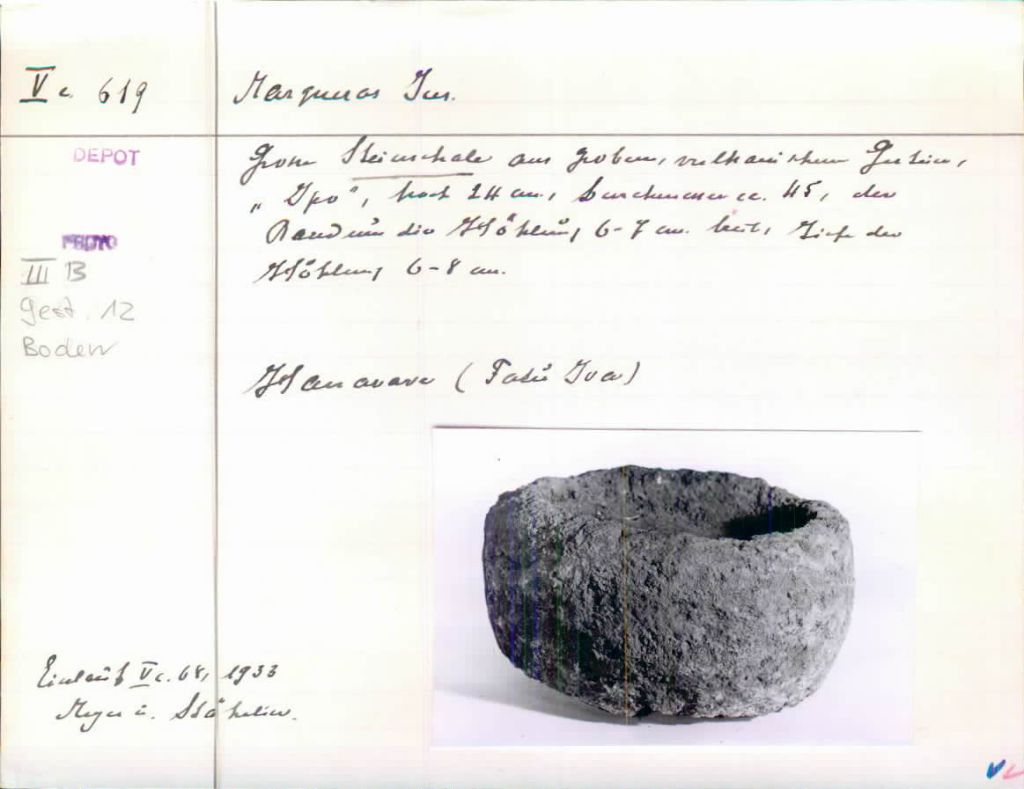 Vc 619
Marquesas Ins.
DEPOT
PHOTO
III B
Gest. 12
Boden
Grosse Steinschale aus grobem, vulkanischem Gestein,
„Ipo", hoch 24 cm, Durchmesser ca. 45, der
Rand um die Höhlung 6-7 cm breit, Tiefe der
Höhlung 6-8 cm.
Hanavave (Fatu Iva)
Einlauf Vc. 68, 1933
Meyer u. Stähelin.